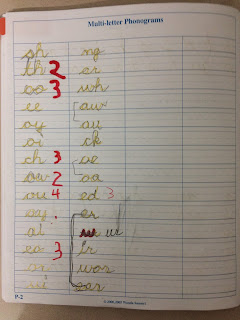 Multi-letter Phonograms
sh
th 2
oo 3
ee
oy
oi
ch 3
ow 2
ou 4
ay
ai
ea 3
ng
wh
aw
au
ck
oe
oa
ed 3
er
ur
ir
wor
ear
P-2